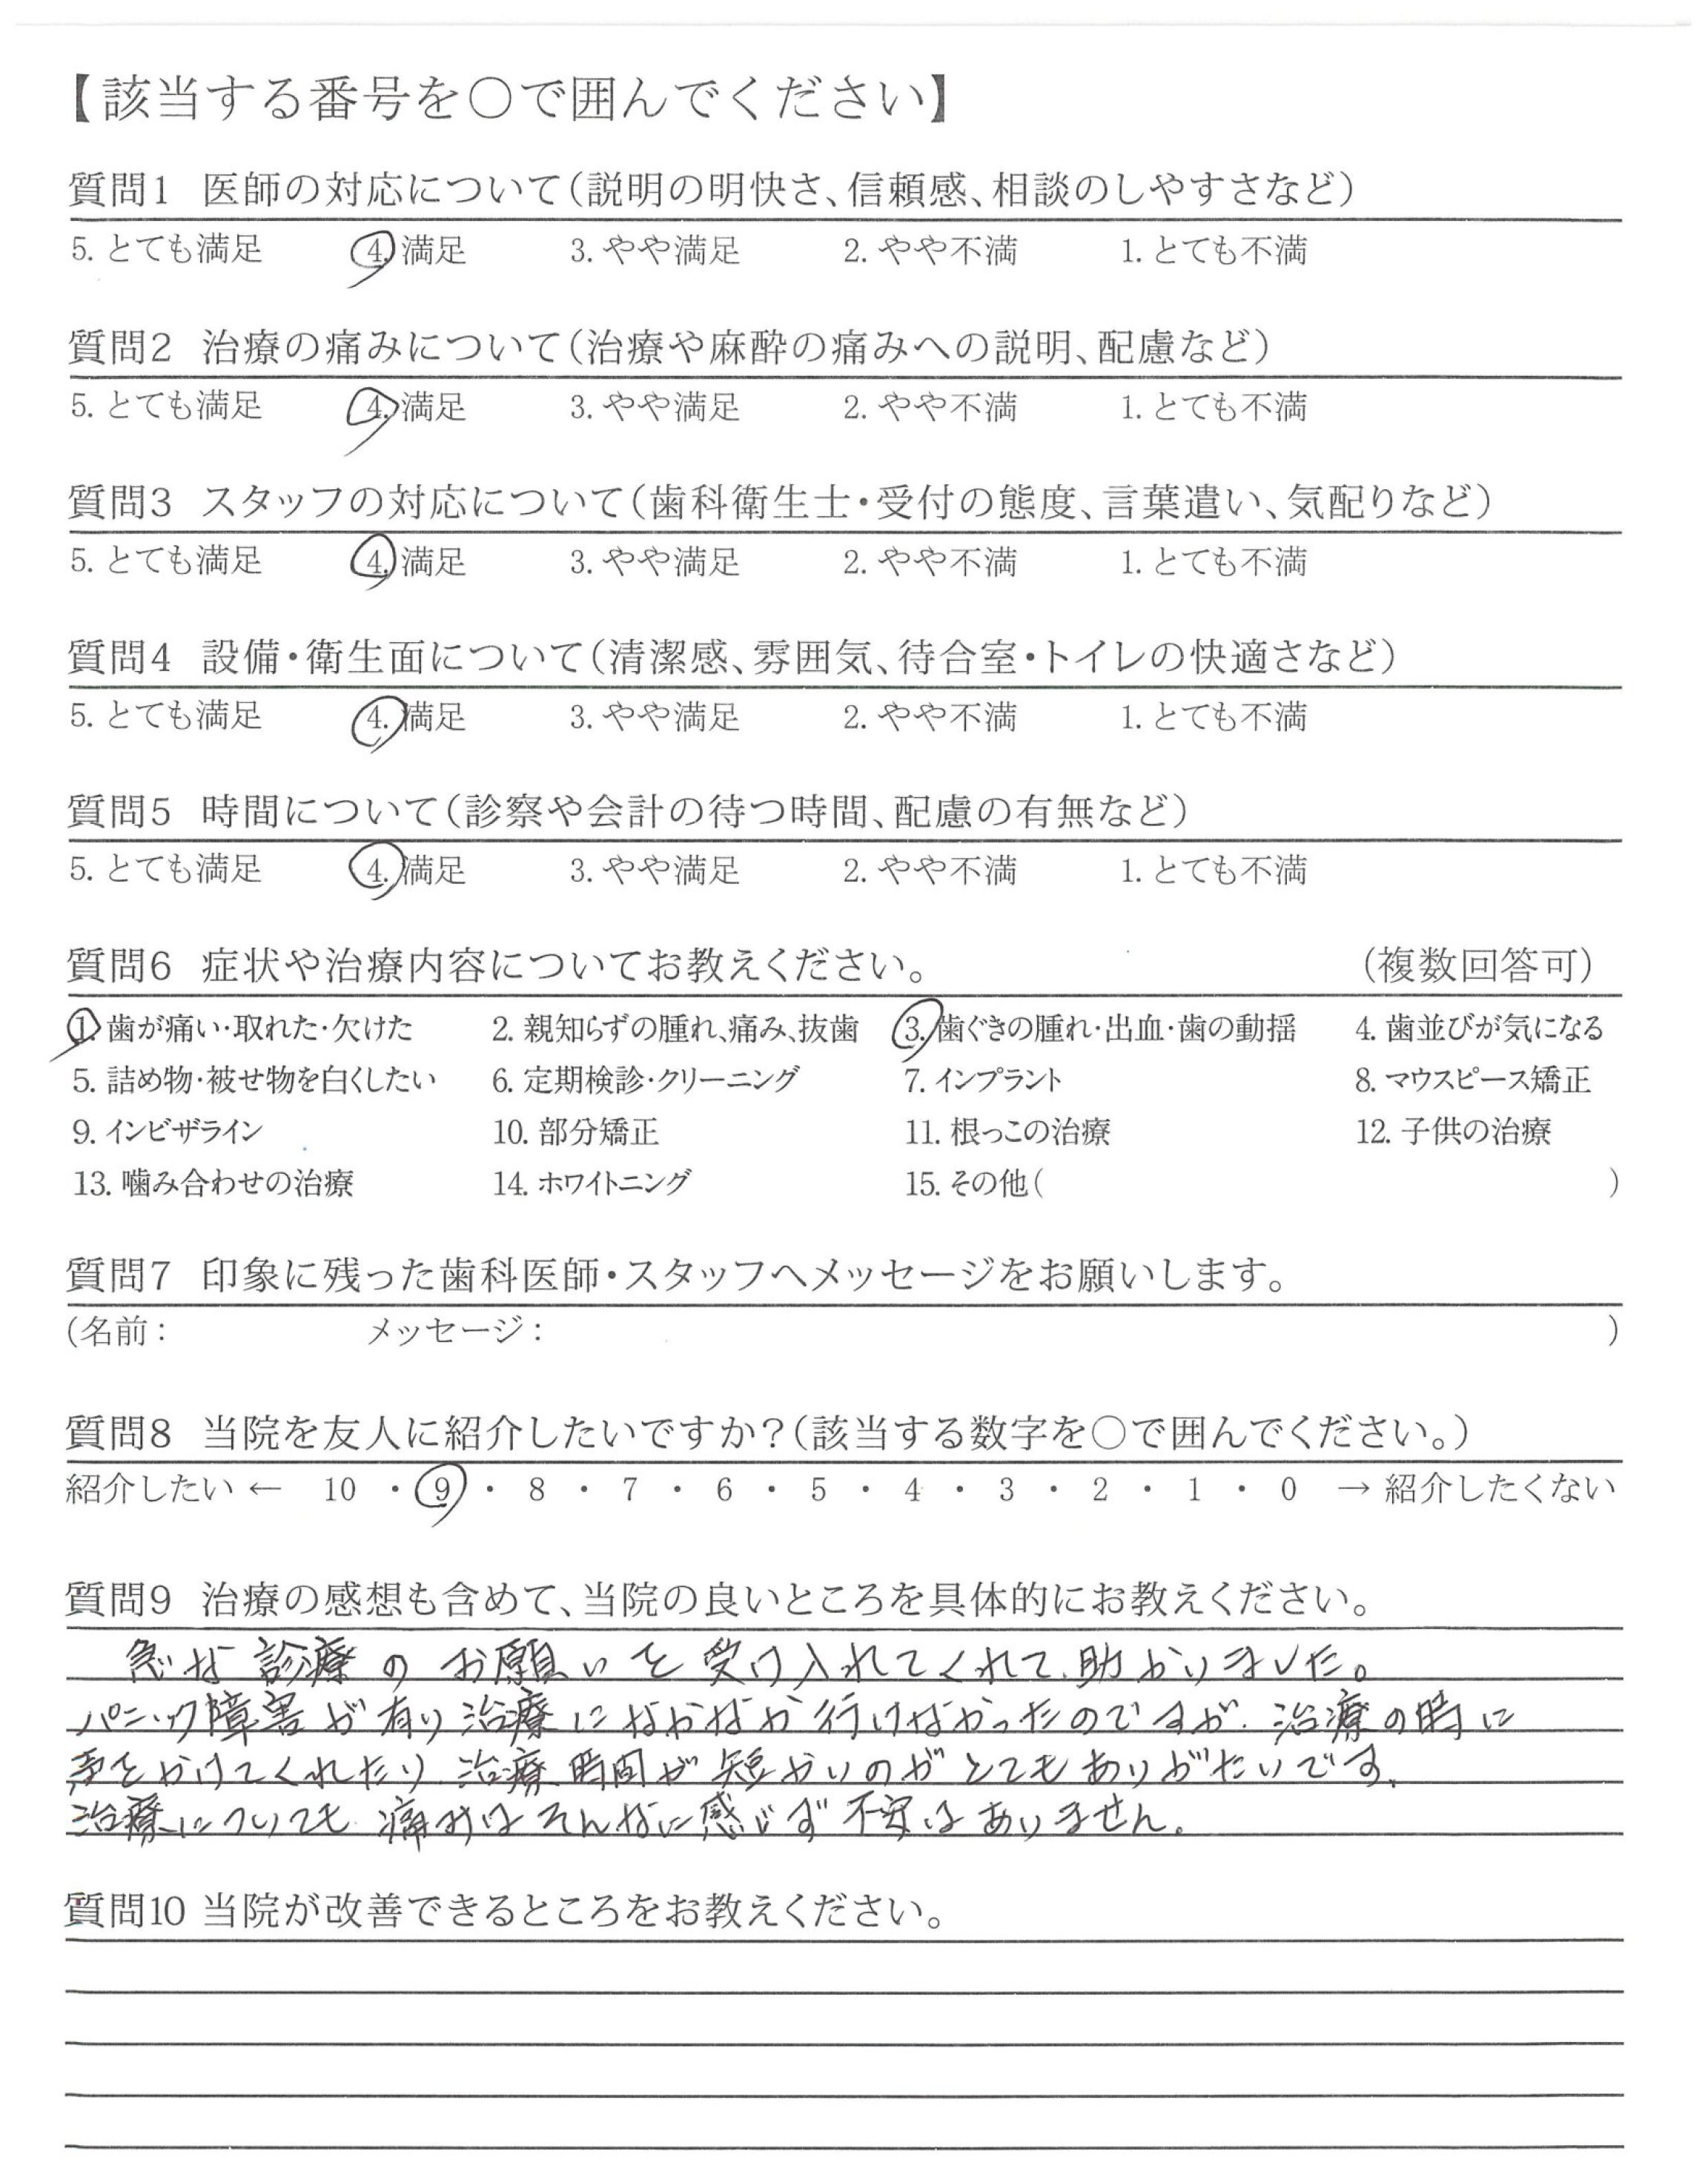 【該当する番号を○で囲んでください】
質問1 医師の対応について(説明の明快さ、信頼感、相談のしやすさなど)
5. とても満足 4. 満足 3. やや満足 2. やや不満 1. とても不満
質問2 治療の痛みについて(治療や麻酔の痛みへの説明、配慮など)
5. とても満足 4. 満足 3. やや満足 2. やや不満 1. とても不満
質問3 スタッフの対応について(歯科衛生士・受付の態度、言葉遣い、気配りなど)
5. とても満足 4. 満足 3. やや満足 2. やや不満 1. とても不満
質問4 設備・衛生面について(清潔感、雰囲気、待合室・トイレの快適さなど)
5. とても満足 4. 満足 3. やや満足 2. やや不満 1. とても不満
質問5 時間について(診察や会計の待つ時間、配慮の有無など)
5. とても満足 4. 満足 3. やや満足 2. やや不満 1. とても不満
質問6 症状や治療内容についてお教えください。 (複数回答可)
1. 歯が痛い・取れた・欠けた 2. 親知らずの腫れ、痛み、抜歯 3. 歯ぐきの腫れ・出血・歯の動揺 4. 歯並びが気になる
5. 詰め物・被せ物を白くしたい 6. 定期検診・クリーニング 7. インプラント 8. マウスピース矯正
9. インビザライン 10. 部分矯正 11. 根っこの治療 12. 子供の治療
13. 噛み合わせの治療 14. ホワイトニング 15. その他( )
質問7 印象に残った歯科医師・スタッフへメッセージをお願いします。
(名前: メッセージ: )
質問8 当院を友人に紹介したいですか?(該当する数字を○で囲んでください。)
紹介したい ← 10 ・ 9 ・ 8 ・ 7 ・ 6 ・ 5 ・ 4 ・ 3 ・ 2 ・ 1 ・ 0 → 紹介したくない
質問9 治療の感想も含めて、当院の良いところを具体的にお教えください。
急な診療のお願いを受け入れてくれて、助かりました。
パニック障害が有り治療になかなか行けなかったのですが、治療の時に
声をかけてくれたり、治療時間が短かいのがとてもありがたいです。
治療についても、痛みはそんなに感じず不安はありません。
質問10 当院が改善できるところをお教えください。